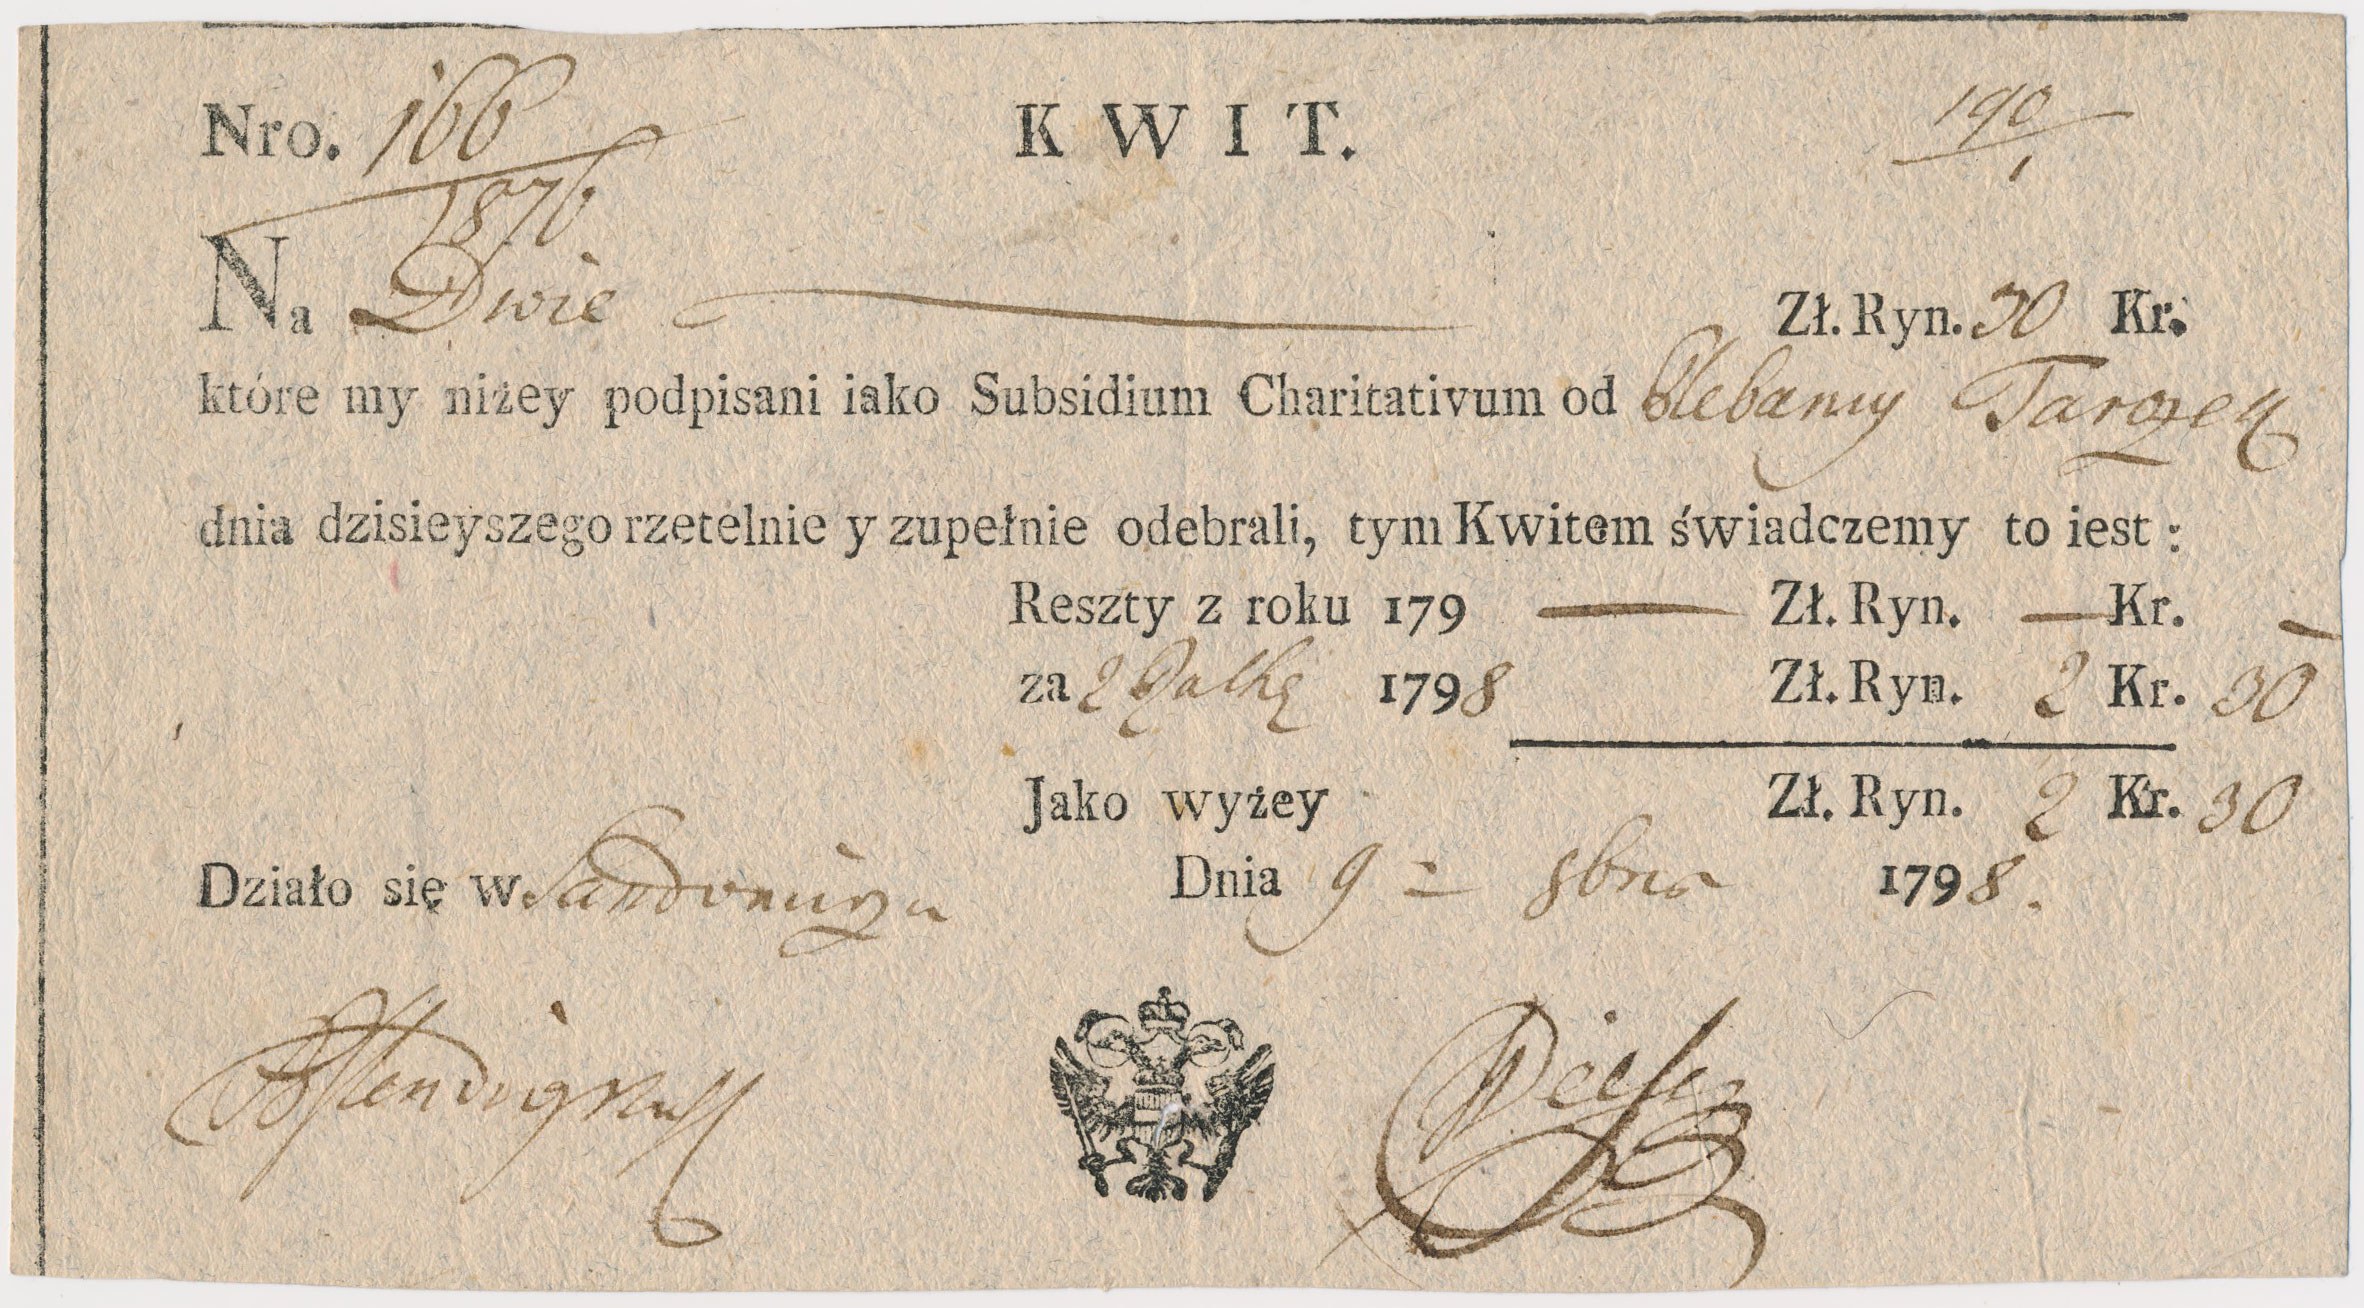 Nro. 166 K W I T. 190
1876 1
Na Dwie Zł. Ryn. 30 Kr.
które my niżey podpisani iako Subsidium Charitativum od Plebanij
dnia dzisieyszego rzetelnie y zupełnie odebrali, tym Kwitem świadczemy to iest:
Reszty z roku 179 — Zł. Ryn. — Kr. —
za 2 Ratkę 1798 Zł. Ryn. 2 Kr. 30
Jako wyżey Zł. Ryn. 2 Kr. 30
Działo się w Sandomirzu Dnia 9 = 8bris 1798.